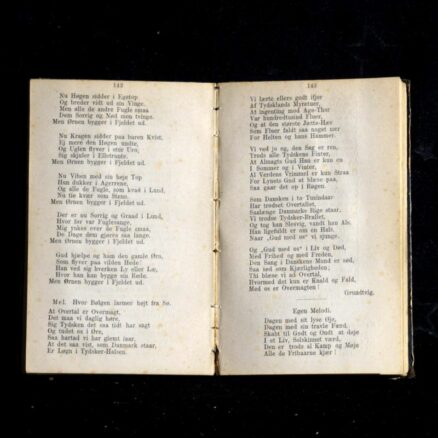 142
Nu Høgen sidder i Egetop
Og breder vidt ud sin Vinge.
Men alle de andre Fugle smaa
Dem Sorrig og Nød mon tvinge.
Men Ørnen bygger i Fjeldet ud.
Nu Kragen sidder paa baren Kvist.
Ej mere den Høgen undte,
Og Uglen flyver i stor Uro,
Sig skjuler i Elletrunte.
Men Ørnen bygger i Fjeldet ud.
Nu Viben med sin høje Top
Hun dukker i Agerrene,
Og alle de Fugle, som kvad i Lund,
Nu tie kvær som Stene.
Men Ørnen bygger i Fjeldet ud.
Der er nu Sorrig og Graad i Lund,
Hvor før var Fuglesange.
Mig ynkes over de Fugle smaa,
De Dage dem gjøres saa lange.
Men Ørnen bygger i Fjeldet ud.
Gud hjælpe og ham den gamle Ørn,
Som flyver paa vilden Hede!
Han ved sig hverken Ly eller Læ,
Hvor han tør bygge sin Rede.
Men Ørnen bygger i Fjeldet ud.
Mel. Hvor Bølgen larmer højt fra Sø.
At Overtal er Overmagt,
Det maa vi daglig høre,
Sig Tydsken det saa tidt har sagt
Og tudet os i Øre,
Saa hartad vi har glemt isør,
At det saa vist, som Danmark staar,
Er Løgn i Tydsker-Halsen.
143
Vi lærte ellers godt ifjor
Af Tydsklands Myretuer,
At ingenting mod Age-Thor
Var hundredtusind Fluer,
Og at den største Jætte-Hær
Som Fluer faldt saa noget nær
For Helten og hans Hammer.
Vi ved jo og, den Sag er ren,
Trods alle Tydskens Finter,
At Almagts Gud Han er kun en
I Sommer og i Vinter,
Al Verdens Vrimmel er kun Straa
For Lynets Gud at blæse paa,
Saa gaar det op i Røgen
Som Dansken i to Tunindaar
Har trodset Overtallet,
Saalænge Danmarks Rige staar,
Vi trodse Tydsker-Brallet,
Og tog han Slesvig, vandt han Als,
Han ligefuldt er om en Hals,
Naar „Gud med os“ vi sjunge.
Og „Gud med os“ i Liv og Død,
Med Frihed og med Freden,
Den Sang i Danskens Mund er sød,
Saa sød som Kjærligheden;
Thi blæse vi ad Overtal,
Hvormed det kun er Knald og Fald,
Med os er Overmagten!
Grundtvig.
Egen Melodi.
Dagen med sit lyse Øje,
Dagen med sin travle Færd,
Skabt til Godt og Ondt at døje
I et Liv, Solskinnet værd,
Den er trods al Kamp og Møje
Alle de Fribaarne kjær!